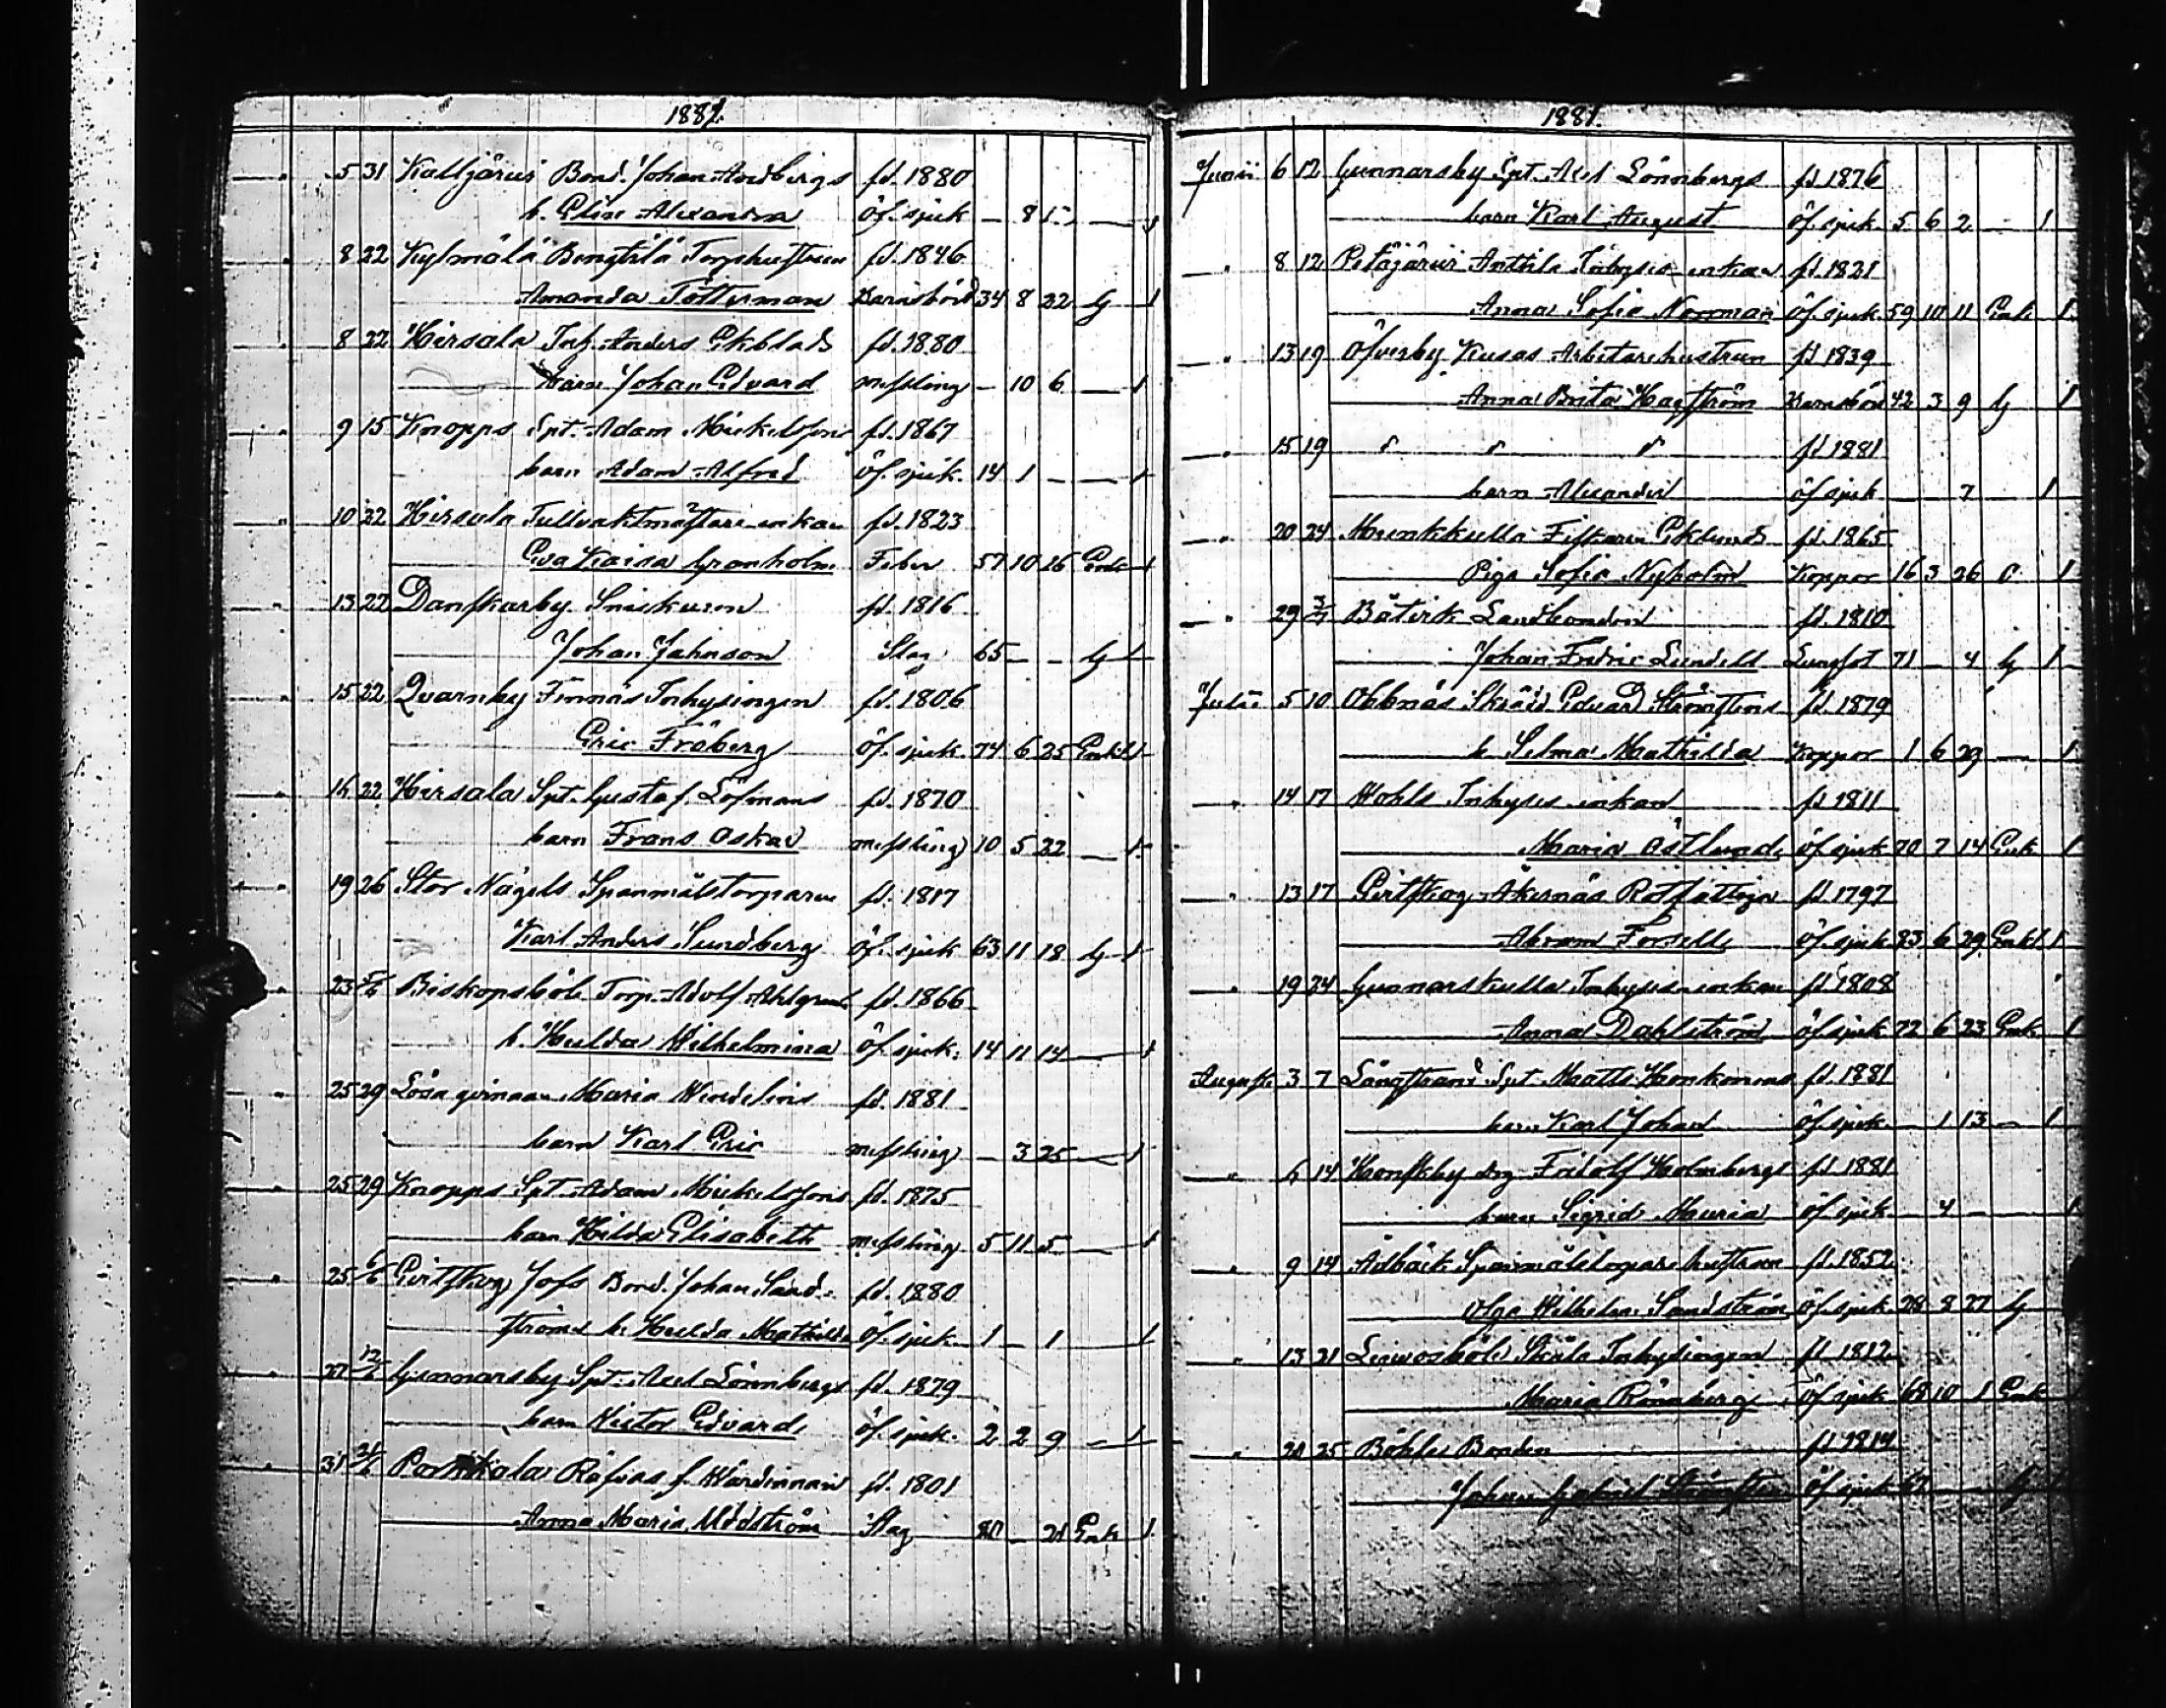 1881.
" 5 31 Kalljärvi Bond. Johan Andbergs fd. 1880
b. Elin Alexandra öf. sjuk — 8 — 1
" 8 22 Kylmälä Bengtilä Torphustrun fd. 1846
Amanda Tötterman Barnsbörd 34 8 22 G 1
" 8 22 Hirsala Inh. Anders Ekblads fd. 1880
barn Johan Edvard messling — 10 6 — 1
" 9 15 Knopps Spt. Adam Mickelssons fd. 1867
barn Adam Alfred öf. sjuk. 14 1 — — 1
" 10 22 Hirsala Tullvaktmästare enkan fd. 1823
Eva Kaisa Granholm Feber 57 10 26 Enk 1
" 13 22 Danskarby Sniskaren fd. 1816
Johan Johnson Slag 65 — — G 1
" 15 22 Qvarnby Finnäs Inhysingen fd. 1806
Eric Fröberg öf. sjuk. 74 6 25 Enkl 1
" 16 22 Hirsala Spt. Gustaf Löfmans fd. 1870
barn Frans Oskar messling 10 5 22 — 1
" 19 26 Stor Nägels Spanmålstorparen fd. 1817
Karl Anders Sundberg öf. sjuk 63 11 18 G 1
" 23 5/6 Biskopsböle Torp. Adolf Ahlgrens fd. 1866
b. Hulda Wilhelmina öf. sjuk. 14 11 14 — 1
" 25 29 Lösa qvinnan Maria Wendelins fd. 1881
barn Karl Eric messling — 3 25 — 1
" 25 29 Knopps Spt. Adam Mickelssons fd. 1875
barn Hilda Elisabeth messling 5 11 5 — 1
" 25 6/6 Evitskog Jofs Bond. Johan Sand- fd. 1880
ströms b. Hulda Mathilda öf. sjuk. 1 — 1 1
" 27 12/6 Gunnarsby Spt. Axel Lönnbergs fd. 1879
barn Victor Edvard öf. sjuk. 2 2 9 — 1
" 31 Porkkala Räfsas f. Wärdinnan fd. 1801
Anna Maria Slag 80 — 21 Enk 1
1881.
Junii 6 12 Gunnarsby Spt. Axel Lönnbergs fd 1876
barn Karl August öf. sjuk. 5 6 2 — 1
" 8 12 Petäjärvi Anttila Inhyses enkan fd. 1821
Anna Sofia Norrman öf. sjuk. 59 10 11 Enk 1
" 13 19 Öfverby Kusas Arbetarehustrun fd 1839
Anna Brita Hagström Barnsbörd 42 3 9 G 1
" 15 19 " " " fd 1881
barn Alexander öf sjuk — 7 — 1
" 20 24 Munkkulla Fiskaren Eklunds fd. 1865
Piga Sofia Nyholm Koppor 16 3 26 O. 1
" 29 3/7 Båtvik Landbonden fd. 1810
Johan Fredric Lundell Lungsot 71 — 4 G 1
Julii 5 10 Obbnäs Skräd. Edvard Strömstens fd. 1879
b. Selma Mathilda Koppor 1 6 29 — 1
" 14 17 Wohls Inhyses enkan fd 1811
Maria Östlund öf sjuk 70 7 14 Enk 1
" 13 17 Evitskog Åkernäs Rotfattigen fd. 1797
Abram Forsell öf. sjuk. 83 6 29 Enkl 1
" 19 24 Gunnarskulla Inhyses enkan fd 1808
Anna Dahlström öf sjuk 72 6 23 Enk 1
Augusti 3 7 Långstrand Spt. Matts fd. 1881
barn Karl Johan öf. sjuk — 1 13 — 1
" 6 14 Honskby drg Fridolf Holmbergs fd 1881
barn Sigrid Maria öf. sjuk. — 4 — 1
" 9 14 Ådbäck Spanmålstorparehustrun fd. 1852
Olga Wilhelm. Sandström öf. sjuk. 28 8 27 G
" 13 21 Inhysingen fd. 1812
Maria Rönnberg öf sjuk 68 10 1 Enk
" 21 25 Böhle Bonden fd 1814
Johan Gabriel Strömsten öf sjuk 67 G